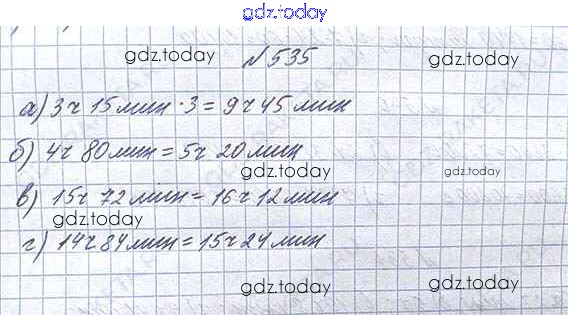 gdz.today
gdz.today № 535 gdz.today
а) 3 ч 15 мин · 3 = 9 ч 45 мин
б) 4 ч 80 мин = 5 ч 20 мин
gdz.today gdz.today
в) 15 ч 72 мин = 16 ч 12 мин
gdz.today
г) 14 ч 84 мин = 15 ч 24 мин
gdz.today gdz.today